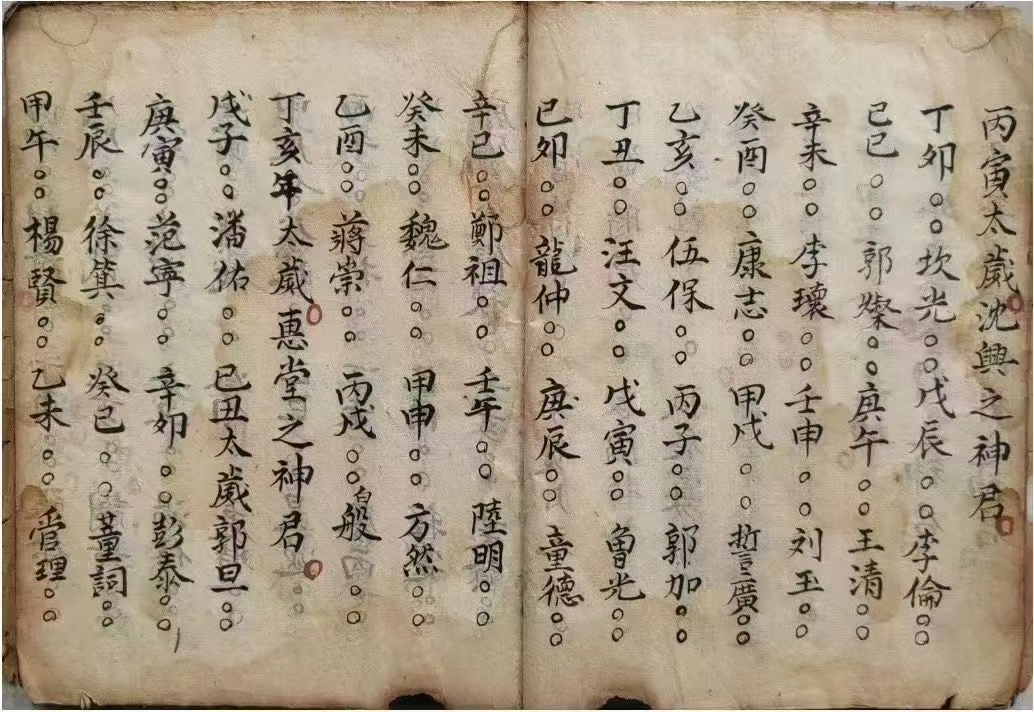 丙寅太歲沈興之神君
丁卯○○坎光○○戊辰○○李倫○○
己巳○○郭燦○○庚午○○王清○○
辛未○○李瓌○○壬申○○刘玉○○
癸酉○○康志○○甲戌○○誓廣○○
乙亥○○伍保○○丙子○○郭加○○
丁丑○○汪文○○戊寅○○魯光○○
己卯○○龍仲○○庚辰○○童德○○
辛巳○○鄭祖○○壬午○○陸明○○
癸未○○魏仁○○甲申○○方然○○
乙酉○○蔣崇○○丙戌○○般○○
丁亥年太歲惠堂之神君
戊子○○潘佑○○己丑太歲郭旦○○
庚寅○○范寧○○辛卯○○彭泰○○
壬辰○○徐箕○○癸巳○○董詞○○
甲午○○楊賢○○乙未○○管理○○